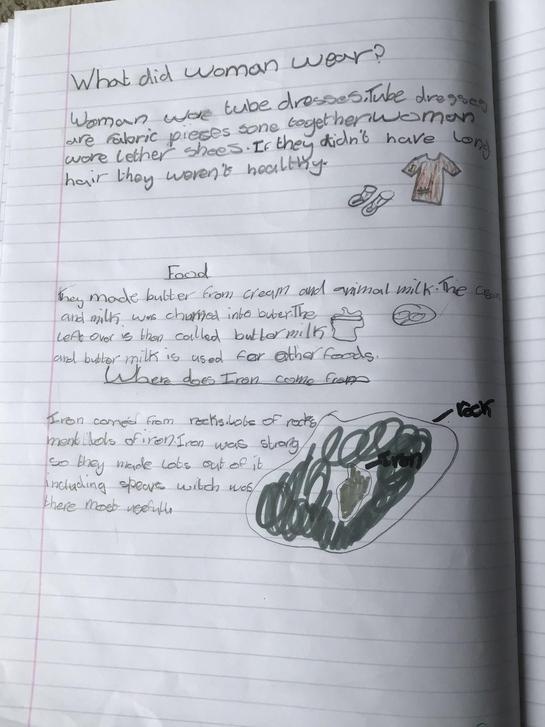 What did woman wear?
Woman woe tube dresses.Tube dresses
are fabric pieses sone together.Woman
wore lether shoes. If they didn't have long
hair they weren't healthy.
Food
They made butter from cream and animal milk. The cream
and milk was churned into buter.The
left over is then called buttermilk
and butter milk is used for other foods.
Where does Iron come from
Iron comes from rocks.Lots of rocks
rock
ment lots of iron.Iron was strong
so they made lots out of it
Iron
including spears witch was
there most usefull.